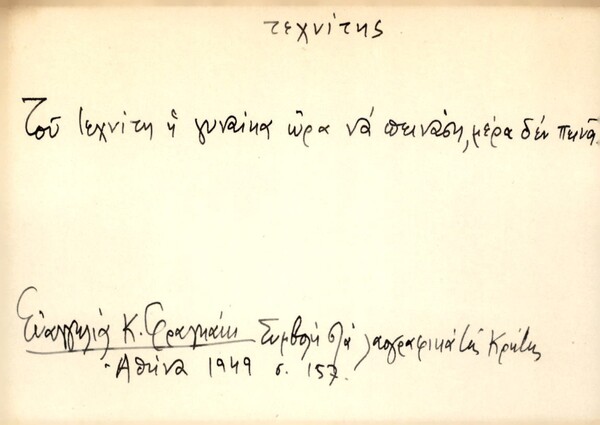 τεχνίτης
Τοῦ τεχνίτη ἡ γυναίκα ὥρα νά πεινάση, μέρα δέν πεινᾶ
Εὐαγγελία Κ. Φραγκάκι Συμβολή στά λαογραφικά τῆς Κρήτης
Ἀθήνα 1949 σ. 157.